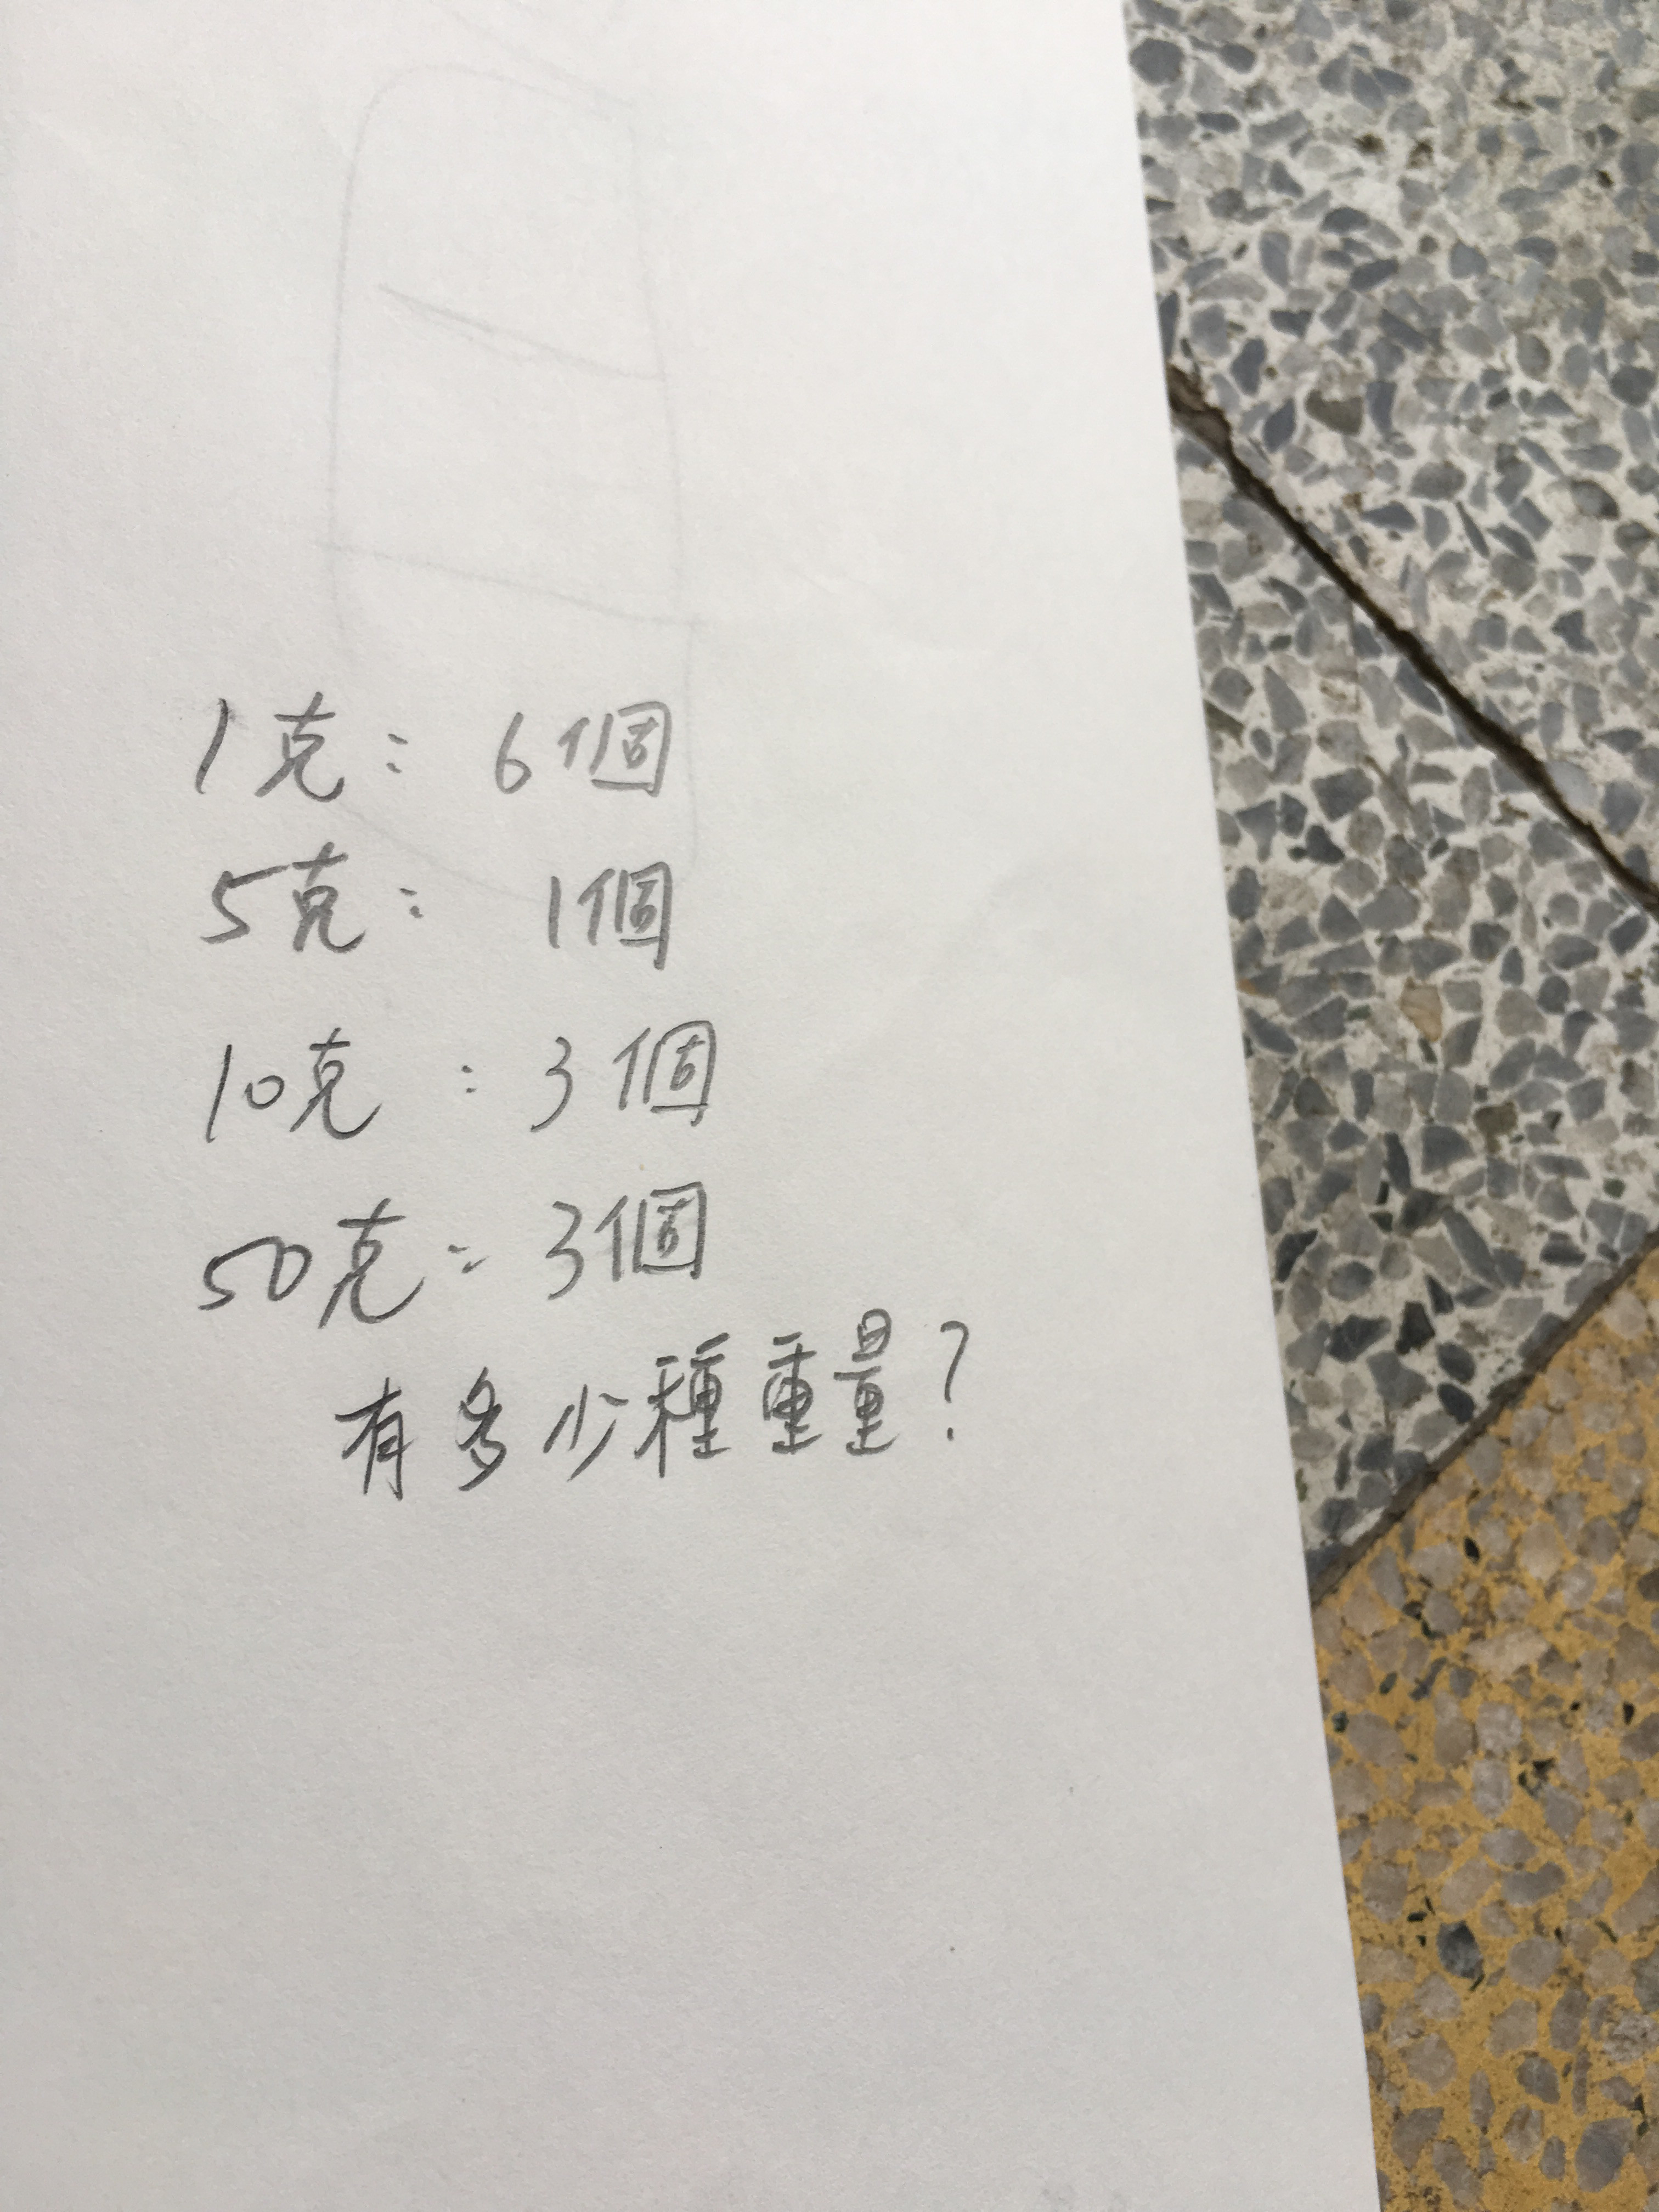 1克: 6個
5克: 1個
10克: 3個
50克: 3個
有多少種重量?